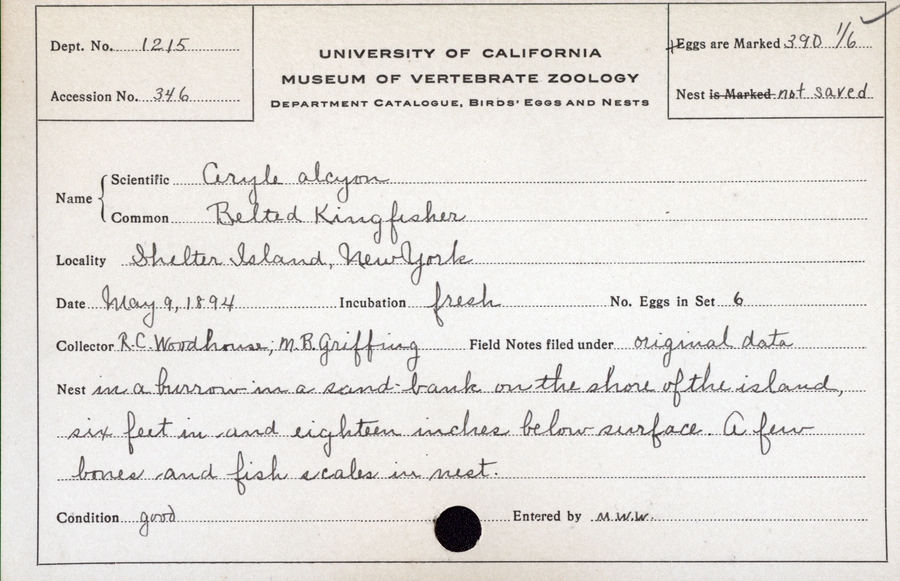 Dept. No. 1215
Accession No. 346
UNIVERSITY OF CALIFORNIA
MUSEUM OF VERTEBRATE ZOOLOGY
DEPARTMENT CATALOGUE, BIRDS' EGGS AND NESTS
Eggs are Marked 390 1/6
Nest is Marked not saved
Name
Scientific Ceryle alcyon
Common Belted Kingfisher
Locality Shelter Island, New York
Date May 9, 1894 Incubation fresh No. Eggs in Set 6
Collector R.C. Woodhouse; M.B. Griffing Field Notes filed under original data
Nest in a burrow in a sand-bank on the shore of the island,
six feet in and eighteen inches below surface. A few
bones and fish scales in nest.
Condition good Entered by M.W.W.